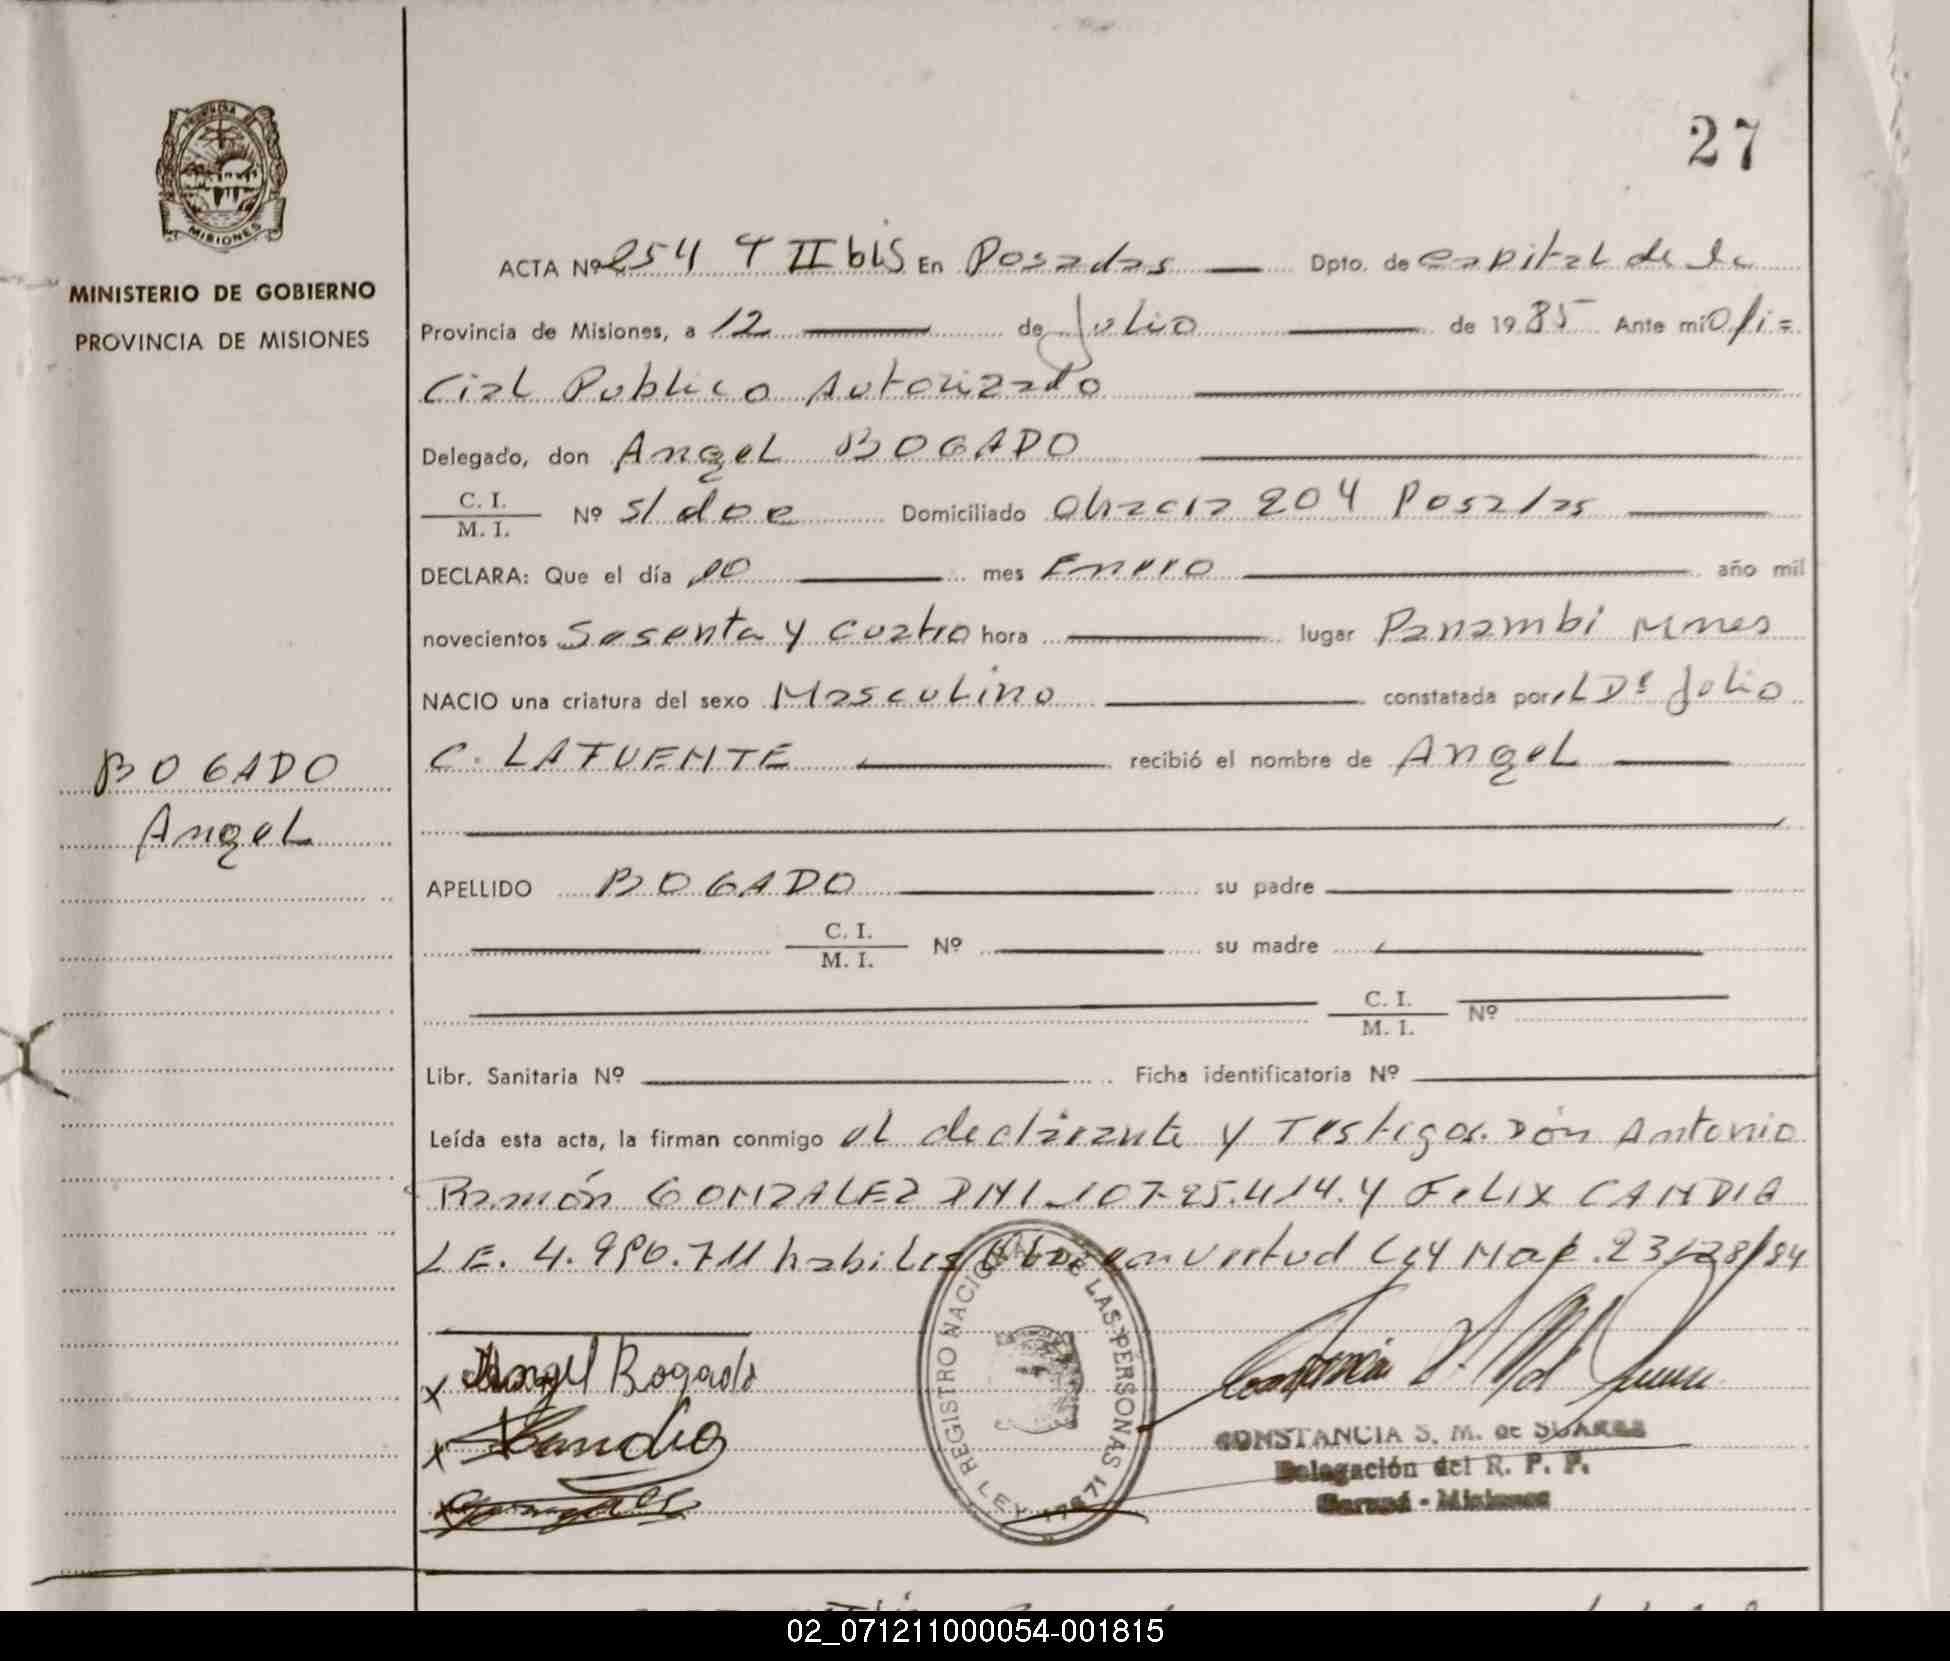 27
MISIONES
MINISTERIO DE GOBIERNO
PROVINCIA DE MISIONES
BOGADO
Angel
ACTA Nº 254 T II bis En Posadas Dpto. de Capital de la
Provincia de Misiones, a 12 de Julio de 1985 Ante mí Ofi=
cial Publico Autorizado
Delegado, don Angel BOGADO
C. I.
M. I. Nº s/ doc Domiciliado 204 Posadas
DECLARA: Que el día mes Enero año mil
novecientos Sesenta y cuatro hora lugar Panambi Mnes
NACIO una criatura del sexo Masculino constatada por el Dr Julio
C. LAFUENTE recibió el nombre de Angel
APELLIDO BOGADO su padre
C. I.
M. I. Nº su madre
C. I.
M. I. Nº
Libr. Sanitaria Nº Ficha identificatoria Nº
Leída esta acta, la firman conmigo el declarante y Testigos. Don Antonio
Ramón GONZALEZ DNI y Felix CANDIA
LE. habiles en virtud Ley Nac.
Angel Bogado
Candia
REGISTRO NACIONAL DE LAS PERSONAS
LEY
CONSTANCIA S. M. de SUAREZ
Delegación del R. P. P.
Garupá - Misiones
02_071211000054-001815